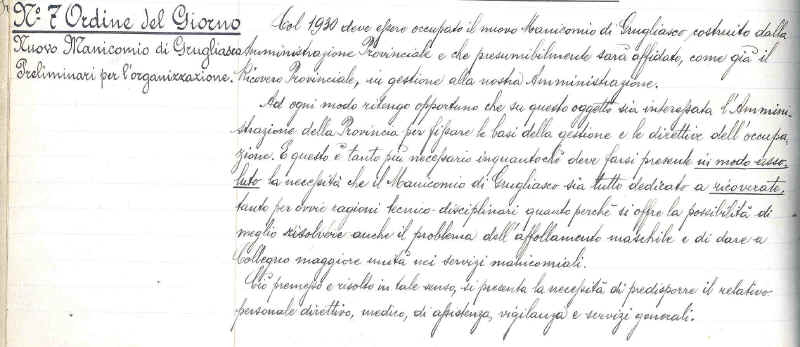 Nº 7 Ordine del Giorno
Nuovo Manicomio di Grugliasco
Preliminari per l'organizzazione.
Col 1930 deve essere occupato il nuovo Manicomio di Grugliasco, costruito dalla
Amministrazione Provinciale e che presumibilmente sarà affidato, come già il
Ricovero Provinciale, in gestione alla nostra Amministrazione.
Ad ogni modo ritengo opportuno che su questo oggetto sia interessata l'Ammini-
strazione della Provincia per fissare le basi della gestione e le direttive dell'occupa-
zione. E questo è tanto più necessario inquantochè deve farsi presente in modo asso-
luto la necessità che il Manicomio di Grugliasco sia tutto dedicato a ricoverate,
tanto per ovvie ragioni tecnico-disciplinari quanto perchè si offre la possibilità di
meglio risolvere anche il problema dell'affollamento maschile e di dare a
Collegno maggiore unità nei servizi manicomiali.
Ciò premesso e risolto in tale senso, si presenta la necessità di predisporre il relativo
personale direttivo, medico, di assistenza, vigilanza e servizi generali.